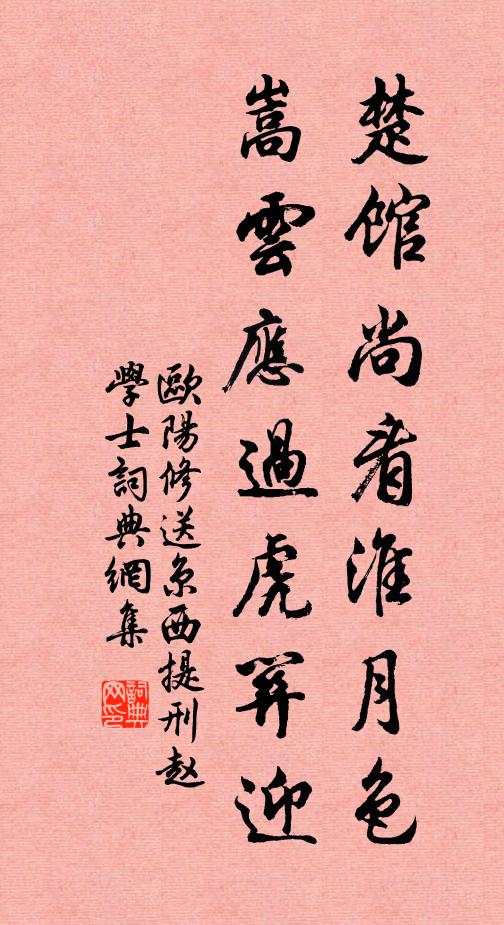 楚館尚看淮月色
嵩雲應過虎關迎
歐陽修送京西提刑趙
學士詞典網集
詞典网印